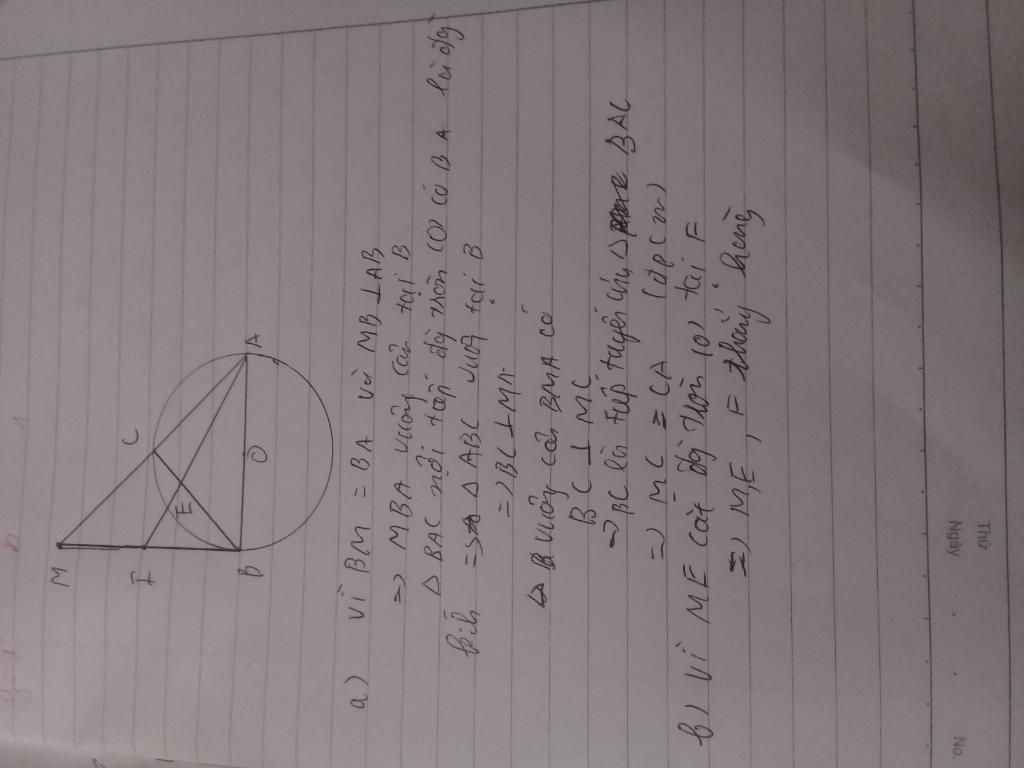 M
C
I
E
A
B
O
a) Vì BM = BA và MB ⊥ AB
=> MBA vuông cân tại B
Δ BAC nội tiếp đg tròn (O) có BA là đg
kính => Δ ABC vuông tại
=> BC ⊥ MA
Δ vuông cân BMA có
BC ⊥ MC
=> BC là trung tuyến của Δ BAC
=> MC = CA (đpcm)
b) Vì ME cắt đg tròn (O) tại F
=> M, E, F thẳng hàng
Thứ
Ngày
No.